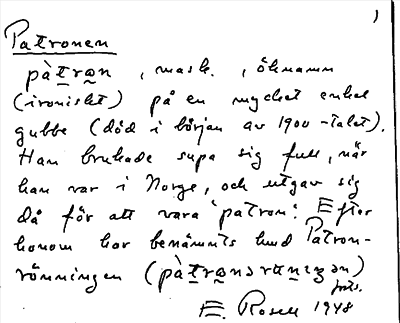 1
Patronen
pàtron, mask., öknamn
(ironiskt) på en mycket enkel
gubbe (död i början av 1900-talet).
Han brukade supa sig full, när
han var i Norge, och utgav sig
då för att vara "patron". Efter
honom har benämnts hmd Patron-
rönningen (pàtronsrönningen)
E. Rosell 1948